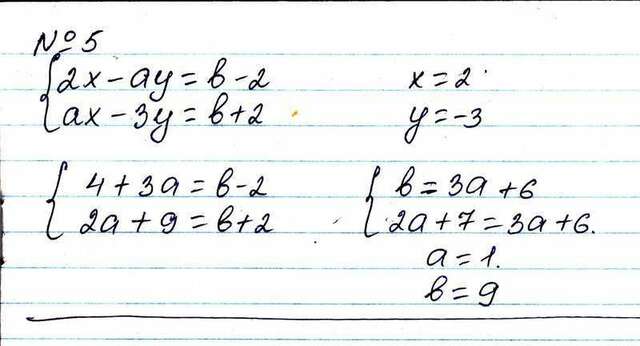 № 5
2x - ay = b - 2
ax - 3y = b + 2
x = 2
y = -3
4 + 3a = b - 2
2a + 9 = b + 2
b = 3a + 6
2a + 7 = 3a + 6.
a = 1.
b = 9